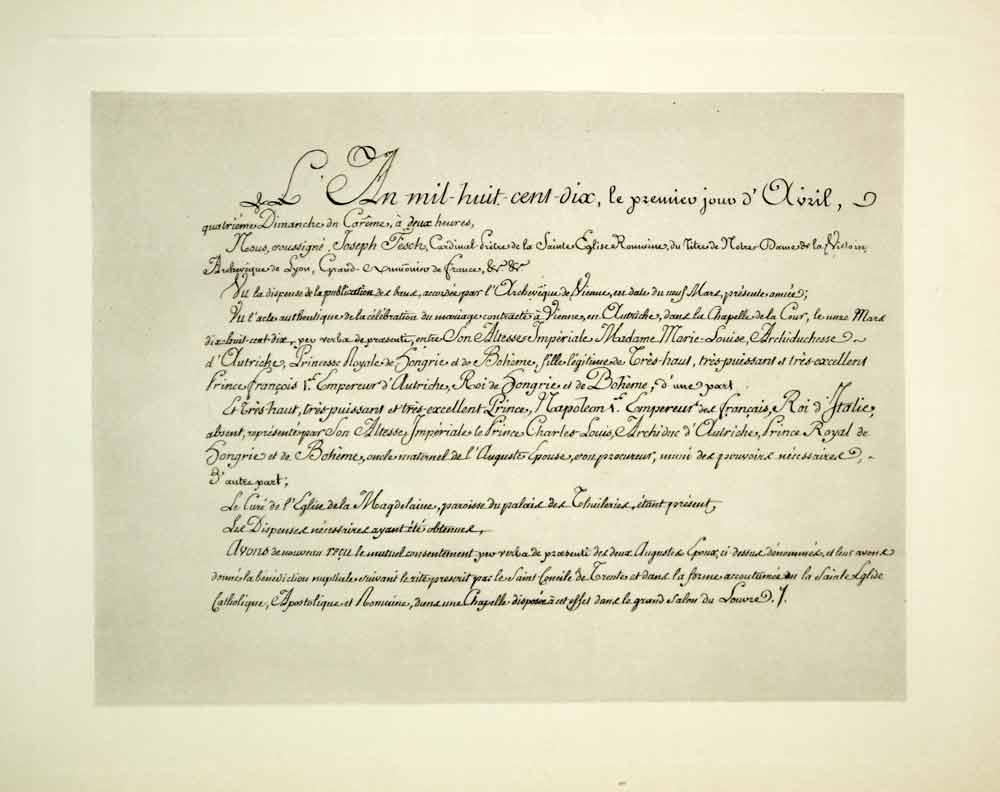 L'An mil-huit-cent-dix, le premier jour d'Avril,
quatrième Dimanche du Carême, à deux heures,
Nous, soussigné, Joseph Fesch, Cardinal-Prêtre de la Sainte Eglise Romaine, du Titre de Notre-Dame de la Victoire,
Archevêque de Lyon, Grand-Aumônier de france, &c &c
Vu la dispense de la publication des bans, accordée par l'Archevêque de Vienne, en date du neuf Mars, présente année;
Vu l'acte authentique de la célébration du mariage contracté à Vienne, en Autriche, dans la Chapelle de la Cour, le onze Mars
dix-huit-cent-dix, per verba de præsenti, entre Son Altesse Impériale Madame Marie-Louise, Archiduchesse
d'Autriche, Princesse Royale de Hongrie et de Bohème, fille légitime de Très-haut, très-puissant et très-excellent
Prince françois 1.er Empereur d'Autriche, Roi de Hongrie et de Bohème, d'une part
Et Très haut, très-puissant et très-excellent Prince, Napoléon 1.er Empereur des français, Roi d'Italie,
absent, représenté par Son Altesse Impériale le Prince Charles Louis, Archiduc d'Autriche, Prince Royal de
Hongrie et de Bohème, oncle maternel de l'Auguste Epouse, son procureur, muni des pouvoirs nécessaires,
D'autre part;
Le Curé de l'Eglise de la Magdelaine, paroisse du palais des Thuileries, étant présent,
Les Dispenses nécessaires ayant été obtenues,
Avons de nouveau reçu le mutuel consentement per verba de præsenti des deux Augustes Epoux, ci dessus dénommés, et leur avons
donné la bénédiction nuptiale suivant le rite prescrit par le Saint Concile de Trente et dans la forme accoutumée en la Sainte Eglise
Catholique, Apostolique et Romaine, dans une Chapelle disposée à cet effet dans le grand Salon du Louvre./.